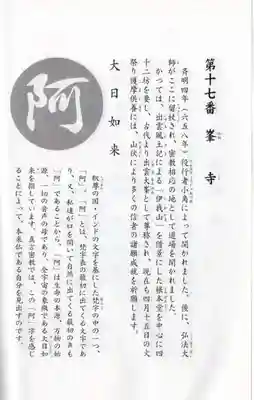 第十七番　峯寺
斉明四年（六五八年）役行者小角によって開かれました。後に、弘法大
師がここに留杖され、密教相応の地として道場を開かれました。
かつては、出雲風土記による「伊我山」を借景にした根本堂を中心に四
十二坊を要し、古代より出雲大峯として尊称され、現在も四月十五日の火
祭り護摩供養には、山伏により多くの信者の諸願成就を祈願します。
大日如来
阿
釈尊の国・インドの文字を基にした梵字の中の一つ、
「阿」。「阿」とは、梵字表の最初に出てくる文字であ
り、又、私達が口を開いて自然に出てくる最初の音が
「阿」であることから、「阿」は生命の本源、万物の始
源、一切の音声の母であり、全宇宙の象徴である大日如
来を指しています。真言密教では、この「阿」字を感じ
ることによって、本来仏である自分を見出すのです。